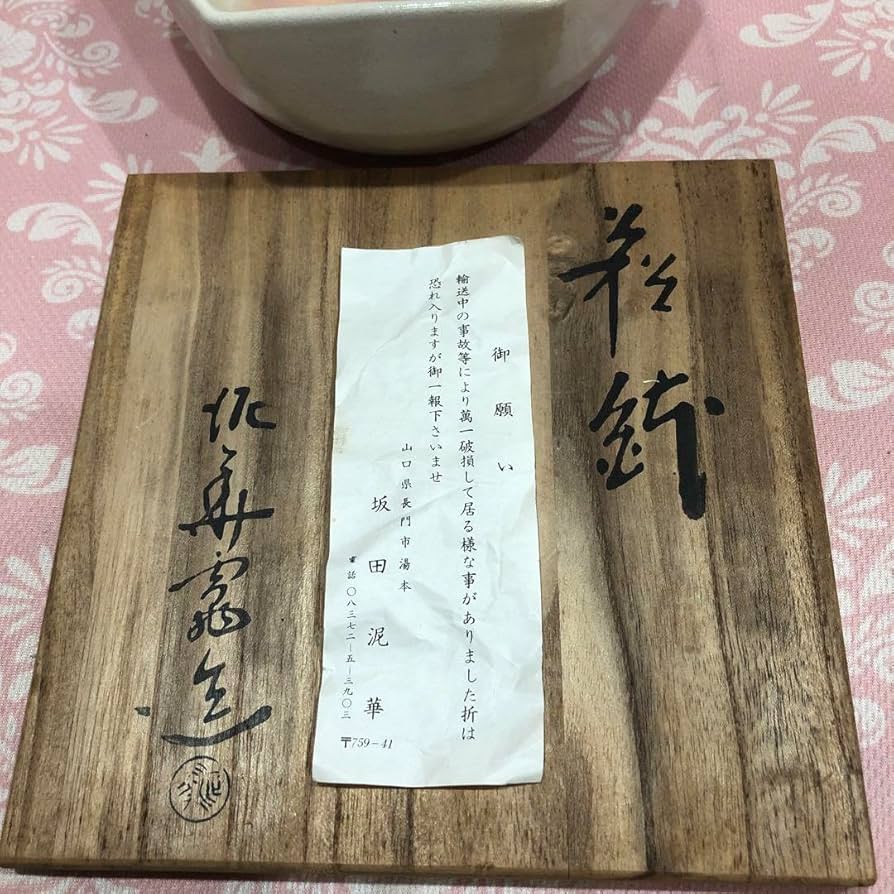 萩鉢
御願い
輸送中の事故等により萬一破損して居る様な事がありました折は
恐れ入りますが御一報下さいませ
山口県長門市湯本
坂田泥華
電話〇八三七二―五―三九〇三
〒759-41
泥華窯造